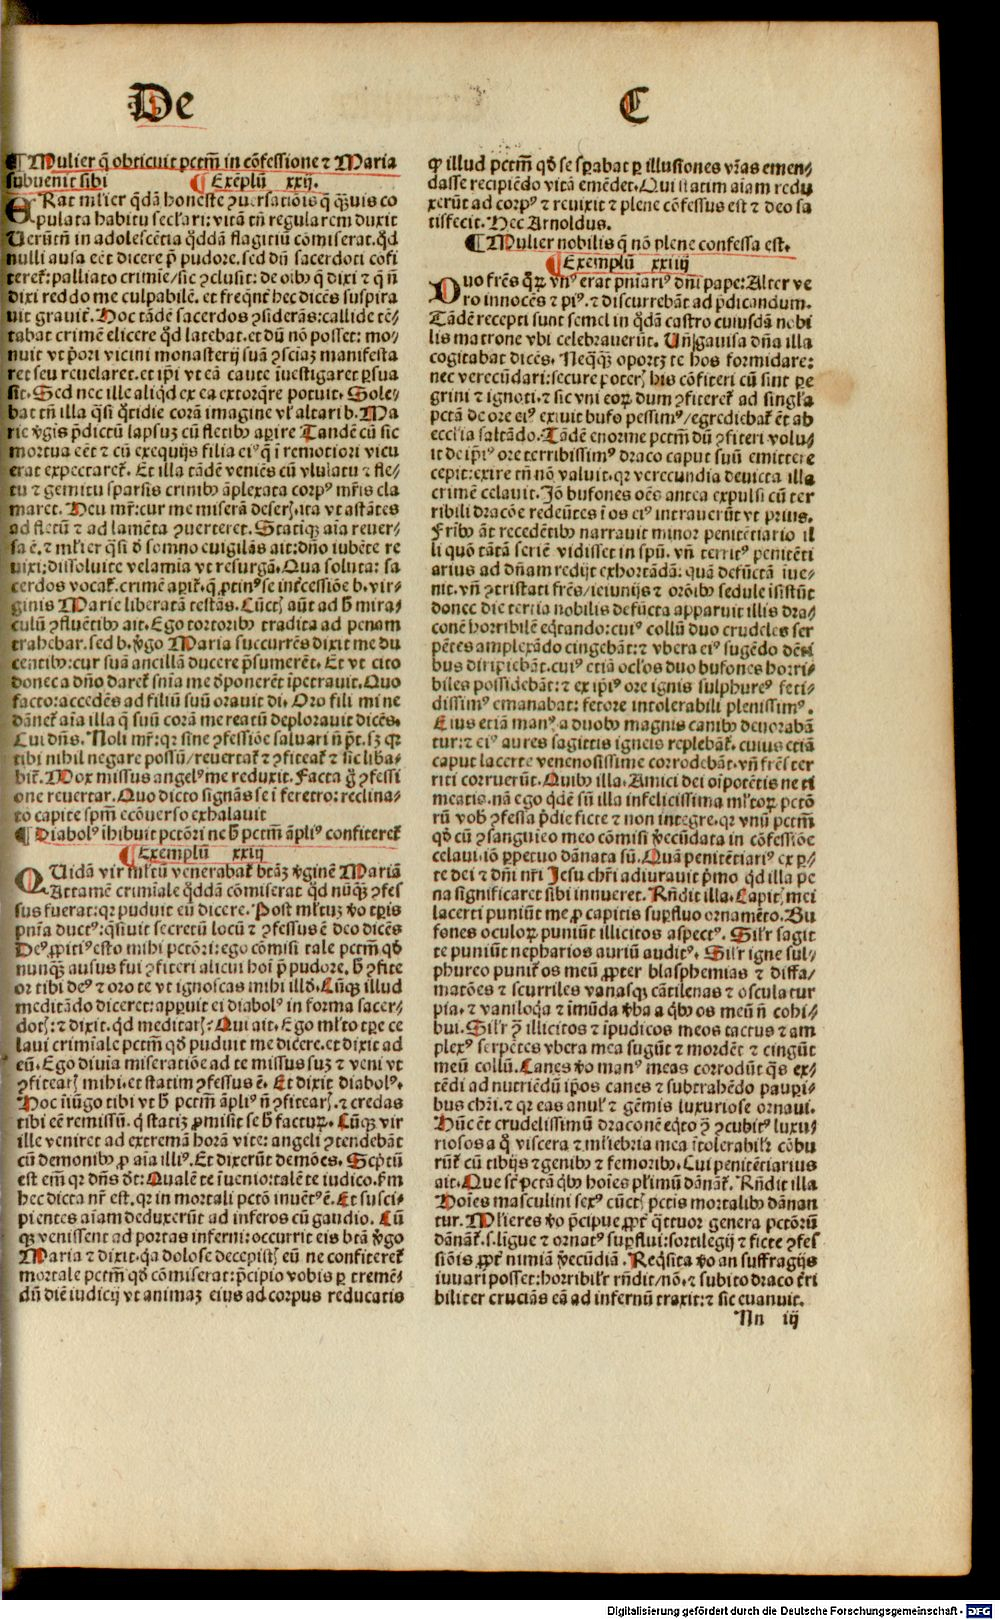 De
C
¶ Mulier q̄ obticuit pctm̄ in cōfessione ⁊ Maria
subuenit sibi ¶ Exēplū xxij.
ERat mľier q̄dā honeste ꝯuersatiōis q̄ q̄uis co
pulata habitu secľari: vitā tn̄ regularem duxit
Uerūtn̄ in adolescētia q̄ddā flagitiū cōmiserat. q̄d
nulli ausa eēt dicere p̄ pudore. sed dū sacerdoti cōfi
teret̄: palliato crimīe/sic ꝯclusit: de oībꝰ q̄ dixi ⁊ q̄ n̄
dixi reddo me culpabilē. et freq̄nt̄ hec dicēs suspira
uit grauit̄. Hoc tādē sacerdos ꝯsiderās: callide tē-
tabat crimē elicere q̄d latebat. et dū nō posset: mo-
nuit vt p̄ori vicini monasterij suā ꝯsciaꝫ manifesta
ret seu reuelaret. et ip̄i vt eā caute īuestigaret ꝑsua
sit. Sed nec ille aliq̄d ex ea extorq̄re potuit. Sole-
bat tn̄ illa q̄si q̄tidie corā imagine vľ altari b. Ma
rie v̄gis p̄dictū lapsuꝫ cū fletibꝰ aꝑire Tandē cū sic
mortua eēt ⁊ cū exequijs filia eiꝰ q̄ ī remotiori vicu
erat expectaret̄. Et illa tādē veniēs cū vlulatu ⁊ fle-
tu ⁊ gemitu sparsis crinibꝰ āplexata corpꝰ mr̄is cla
maret. Heu mr̄: cur me miserā deserꝭ. ita vt astātes
ad fletū ⁊ ad lamēta ꝯuerteret. Statiqꝫ aīa reuer-
sa ē. ⁊ mľier q̄si d̄ somno euigilās ait: dn̄o iubēte re
uixi: dissoluite velamia vt resurgā. Qua soluta: sa
cerdos vocat̄. crimē aꝑit̄. q̄ ꝓtinꝰ se int̄cessiōe b. vir-
ginis Marie liberatā testās. Cūctꝭ aūt ad h̄ mira-
culū ꝯfluētibꝰ ait. Ego tortoribꝰ tradita ad penam
trahebar. sed b. v̄go Maria succurrēs dixit me du
centibꝰ: cur suā ancillā ducere p̄sumerēt. Et vt cito
donec a dn̄o daret̄ sn̄ia me d̄ponerēt īpetrauit. Quo
facto: accedēs ad filiū suū orauit dī. Oro fili mi ne
dānet̄ aīa illa q̄ suū corā me reatū deplorauit dicēs.
Cui dn̄s. Noli mr̄: qꝛ sine ꝯfessiōe saluari n̄ pt̄. sꝫ qꝛ
tibi nihil negare possū/reuertat̄ ⁊ ꝯfiteat̄ ⁊ sic libа-
bit̄. Mox missus angelꝰ me reduxit. Facta g̊ ꝯfessi
one reuertar. Quo dicto signās se ī feretro: reclina-
to capite spm̄ ecōuerso exhalauit
¶ Diabolꝰ ihibuit pctōri ne h̄ pctm̄ āpliꝰ confiteret̄
¶ Exemplū xxiij
QUidā vir mľtū venerabat̄ btāꝫ v̄ginē Mariā
Attamē crimiale q̄ddā cōmiserat q̄d nūq̄ꝫ ꝯfes
sus fuerat: qꝛ puduit eū dicere. Post mľtuꝫ v̊o tꝑis
pnīa ductꝰ: q̄siuit secretū locū ⁊ ꝯfessus ē deo dicēs
Deꝰ ꝓpitiꝰ esto mihi pctōri: ego cōmisi tale pctm̄ qd̄
nunqꝫ ausus fui ꝯfiteri alicui hoī p̄ pudore. h̄ ꝯfite
or tibi deꝰ ⁊ oro te vt ignoscas mihi illd̄. Cūqꝫ illud
meditādo diceret: apꝑuit ei diabolꝰ in forma sacer-
dotꝭ: ⁊ dixit. qd̄ meditarꝭ? Qui ait. Ego mľto tꝑe ce
laui crimīale pctm̄ qd̄ puduit me dicere. et dixit ad
eū. Ego diuīa miseratiōe ad te missus suꝫ ⁊ veni vt
ꝯfitearꝭ mihi. et statim ꝯfessus ē. Et dixit diabolꝰ.
Hoc iniūgo tibi vt h̄ pctm̄ āpliꝰ n̄ ꝯfitearꝭ. ⁊ credas
tibi eē remissū. q̄ statiꝫ ꝓmisit se h̄ facturꝫ. Cūqꝫ vir
ille veniret ad extremā horā vite: angeli ꝯtendebāt
cū demonibꝰ ꝓ aīa illiꝰ. Et dixerūt demōes. Scp̄tū
est em̄ qꝛ dn̄s dt̄: Qualē te īuenio: talē te iudico. fm̄
hec dicta nr̄ est. qꝛ in mortali pctō inuētꝰ ē. Et susci-
pientes aīam deduxerūt ad inferos cū gaudio. Cū
qꝫ venissent ad portas inferni: occurrit eis btā v̄go
Maria ⁊ dixit. q̄a dolose decepistꝭ eū ne confiteret̄
mortale pctm̄ qd̄ cōmiserat: p̄cipio vobis ꝑ tremē-
dū diē iudicij vt animaꝫ eius ad corpus reducatis
qꝛ illud pctm̄ qd̄ se sꝑabat ꝑ illusiones vr̄as emen-
dasse recipiēdo vitā emēdet. Qui statim aīam redu
xerūt ad corpꝰ ⁊ reuixit ⁊ plene cōfessus est ⁊ deo sa
tisfecit. Hec Arnoldus.
¶ Mulier nobilis q̄ nō plene confessa est.
¶ Exemplū xxiiij
DUo frēs q̄ꝝ vnꝰ erat pniariꝰ dn̄i pape: Alter ve
ro innocēs ⁊ piꝰ. ⁊ discurrebāt ad p̄dicandum.
Tādē recepti sunt semel in q̄dā castro cuiusdā nobi
lis matrone vbi celebrauerūt. Un̄ gauisa dn̄a illa
cogitabat dicēs. Neq̄qꝫ oportꝫ te hos formidare:
nec verecūdari: secure poterꝭ his cōfiteri cū sint ꝑe
grini ⁊ ignoti. ⁊ sic vni eoꝝ dum ꝯfiteret̄ ad singľa
pctā de ore eiꝰ exiuit bufo pessimꝰ/egrediebat̄ ēt ab
eccľia saltādo. Tādē enorme pctm̄ dū ꝯfiteri volu-
it de ip̄iꝰ ore terribissimꝰ draco caput suū emittere
cepit: exire tn̄ nō valuit. qꝛ verecundia deuicta illa
crimē celauit. Jō bufones oēs antea expulsi cū ter
ribili dracōe redeūtes ī os eiꝰ intrauerūt vt prius.
Frībꝰ āt recedētibꝰ narrauit minor penitētiario il
li quō tātā seriē vidisset in spū. vn̄ territꝰ penitēti
arius ad dn̄am redijt exhortādā: quā defūctā iue-
nit. vn̄ ꝯtristati frēs/ieiunijs ⁊ orōibꝰ sedule īsistūt
donec die tertia nobilis defūcta apparuit illis dra-
conē horribilē eq̄tando: cuiꝰ collū duo crudeles ser
pētes amplexādo cingebāt: ⁊ vbera eiꝰ sugēdo dēti
bus diripiebāt. cuiꝰ etiā ocľos duo bufones horri-
biles possidebāt: ⁊ ex ip̄iꝰ ore ignis sulphureꝰ feti-
dissimꝰ emanabat: fetore intolerabili plenissimꝰ.
Eius etiā manꝰ a duobꝰ magnis canibꝰ deuorabā
tur: ⁊ eiꝰ aures sagittis igneis replebāt̄. cuius etiā
caput lacerte venenosissime corrodebāt. vn̄ frēs ter
riti corruerūt. Quibꝰ illa. Amici dei oīpotētis ne ti
meatis. nā ego q̄dē sū illa infelicissima mľtoꝝ pctō
rū vob̄ ꝯfessa p̄die ficte ⁊ non integre. qꝛ vnū pctm̄
qd̄ cū ꝯsanguīeo meo cōmisi v̄ecūdata in cōfessiōe
celaui. iō ꝑpetuo dānata sū. Quā penitētiariꝰ ex ꝑ-
te dei ⁊ dn̄i nr̄i Jesu chr̄i adiurauit p̄mo qd̄ illa pe
na significaret sibi innueret. Rn̄dit illa. Capitꝭ mei
lacerti puniūt me ꝓ capitis suꝑfluo ornamēto. Bu
fones oculoꝝ puniūt illicitos aspectꝰ. Sil'r sagit
te puniūt nepharios auriū auditꝰ. Sil'r igne sul-
phureo punit̄ os meū ꝓpter blasphemias ⁊ diffa-
matōes ⁊ scurriles vanasqꝫ cātilenas ⁊ oscula tur
pia. ⁊ vaniloq̄a ⁊ īmūda v̄ba a q̄bꝰ os meū n̄ cohi-
bui. Sil'r ꝓ illicitos ⁊ ipudicos meos tactus ⁊ am
plexꝰ serpētes vbera mea sugūt ⁊ mordēt ⁊ cingūt
meū collū. Canes v̊o manꝰ meas corrodūt q̄s ex-
tēdi ad nutriēdū ip̄os canes ⁊ subtrahēdo pauꝑi-
bus chr̄i. ⁊ qꝛ eas anuľ ⁊ gēmis luxuriose ornaui.
Hūc ēt crudelissimū draconē eq̄to ꝓ ꝯcubitꝰ luxu-
riosos a q̄ viscera ⁊ mľiebria mea ītolerabil'r cōbu
rūt̄ cū tibijs ⁊ genibꝰ ⁊ femoribꝰ. Cui penitētiarius
ait. Que st̄ pctā q̄bꝰ hoīes pľimū dānāt̄. Rn̄dit illa
Hoīes masculini sexꝰ cūctꝭ pctīs mortalibꝰ dānan
tur. Mľieres v̊o p̄cipue ꝓpt̄ q̄ttuor genera pctōrū
dānāt̄. s. ligue ⁊ ornatꝰ suꝑflui: sortilegij ⁊ ficte ꝯfes
siōis ꝓpt̄ nimiā v̄ecūdiā. Req̄sita v̊o an suffragijs
iuuari posset: horribil'r rn̄dit/nō. ⁊ subito draco t̄ri
biliter cruciās eā ad infernū traxit: ⁊ sic euanuit.
Nn iij
Digitalisierung gefördert durch die Deutsche Forschungsgemeinschaft - DFG